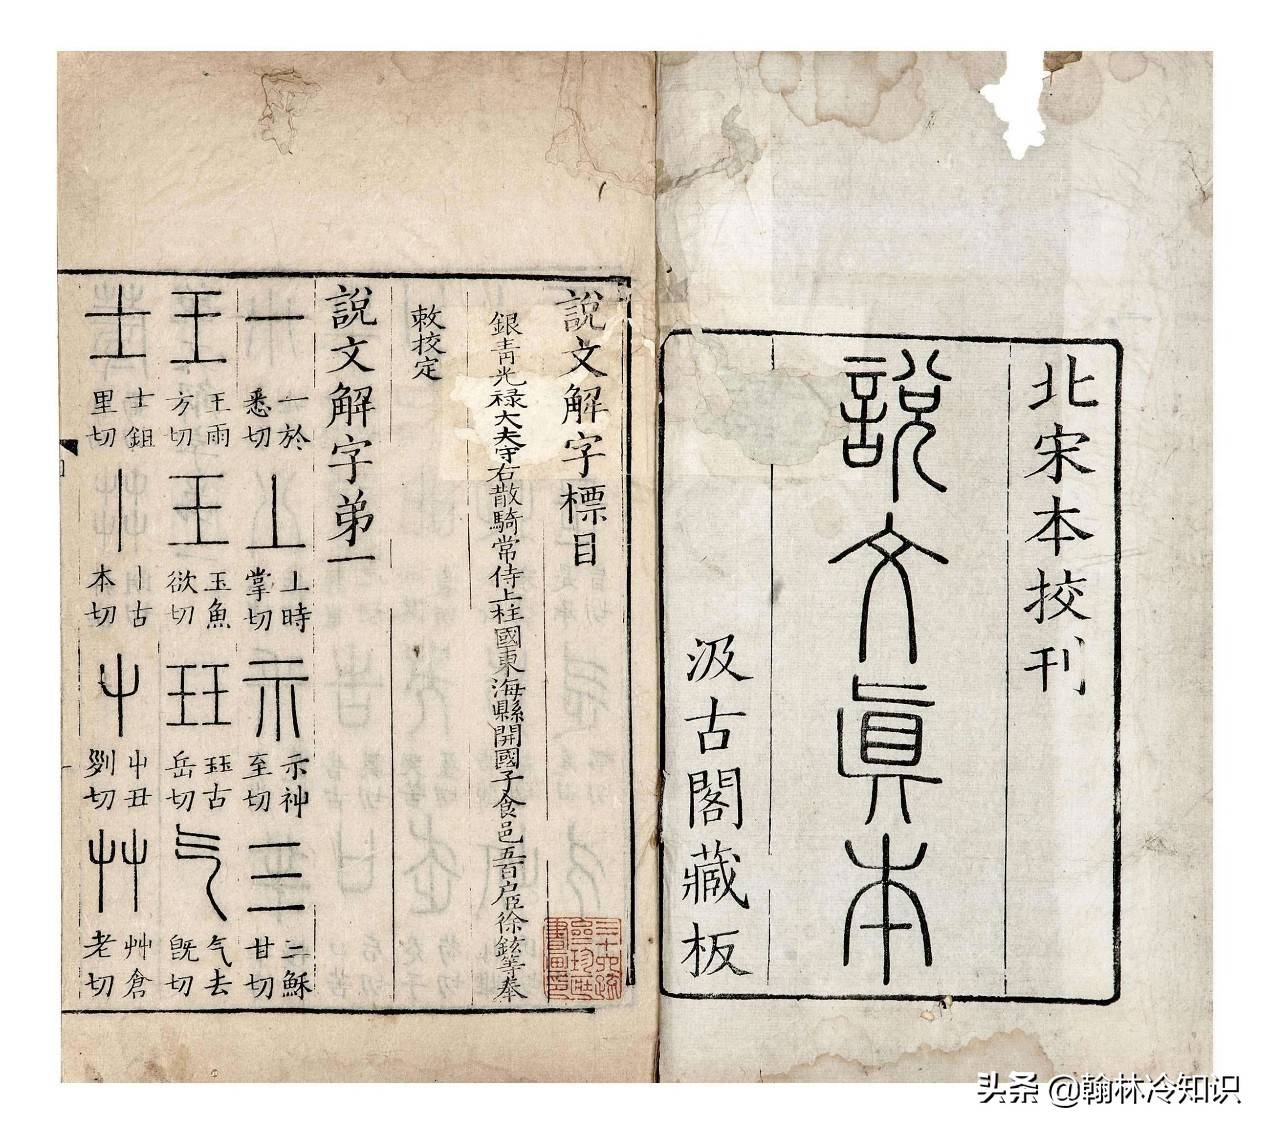 北宋本校刊
說文真本
汲古閣藏板
說文解字標目
銀青光祿大夫守右散騎常侍上柱國東海縣開國子食邑五百户臣徐鉉等奉
敕挍定
說文解字弟一
一 一於悉切 丄 丄時掌切 示 示神至切 三 三穌甘切
王 王雨方切 玉 玉魚欲切 玨 玨古岳切 气 气去旣切
士 士鉏里切 丨 丨古本切 屮 屮丑列切 艸 艸倉老切
头条 @翰林冷知识